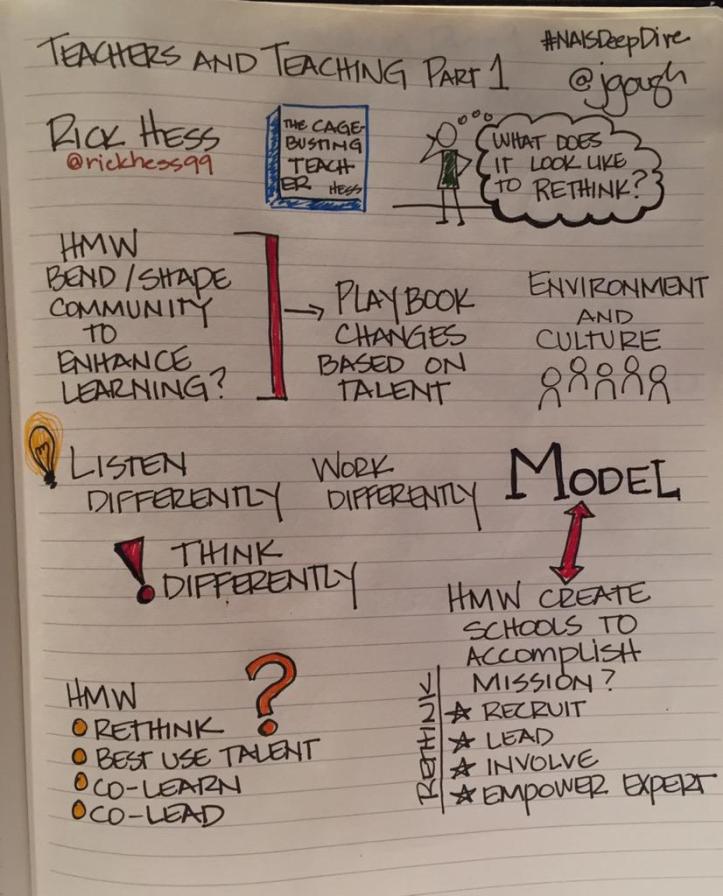 TEACHERS AND TEACHING PART 1
#NAISDeepDive
@jgough
RICK HESS
@rickhess99
THE CAGE-
BUSTING
TEACH
ER HESS
WHAT DOES
IT LOOK LIKE
TO RETHINK?
HMW
BEND/SHAPE
COMMUNITY
TO
ENHANCE
LEARNING?
PLAYBOOK
CHANGES
BASED ON
TALENT
ENVIRONMENT
AND
CULTURE
LISTEN
DIFFERENTLY
WORK
DIFFERENTLY
MODEL
! THINK
DIFFERENTLY
HMW CREATE
SCHOOLS TO
ACCOMPLISH
MISSION?
RETHINK
RECRUIT
LEAD
INVOLVE
EMPOWER EXPERT
HMW ?
RETHINK
BEST USE TALENT
CO-LEARN
CO-LEAD